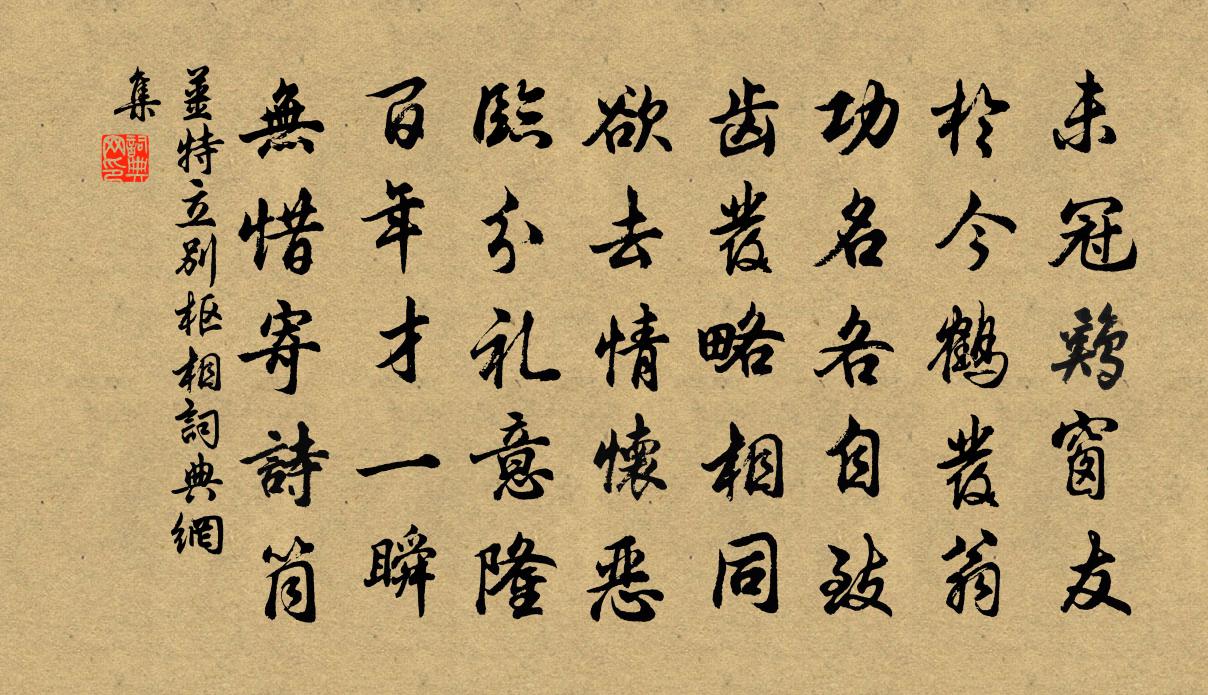 未冠鷄窗友
於今鶴發翁
功名各自致
齿發略相同
欲去情懷恶
臨分礼意隆
百年才一瞬
無惜寄詩筒
薑特立别枢相詞典網
集
詞典
网印